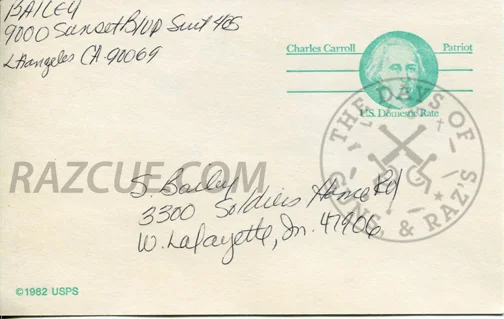 BAILEY
9000 Sunset Blvd Suit 405
L Angeles CA. 90069
Charles Carroll
Patriot
U.S. Domestic Rate
THE DAYS OF
GUNS, & RAZ'S
RAZCUE.COM
S. Bailey
3300 Soldiers Home Rd
W. Lafayette, In. 47906
©1982 USPS